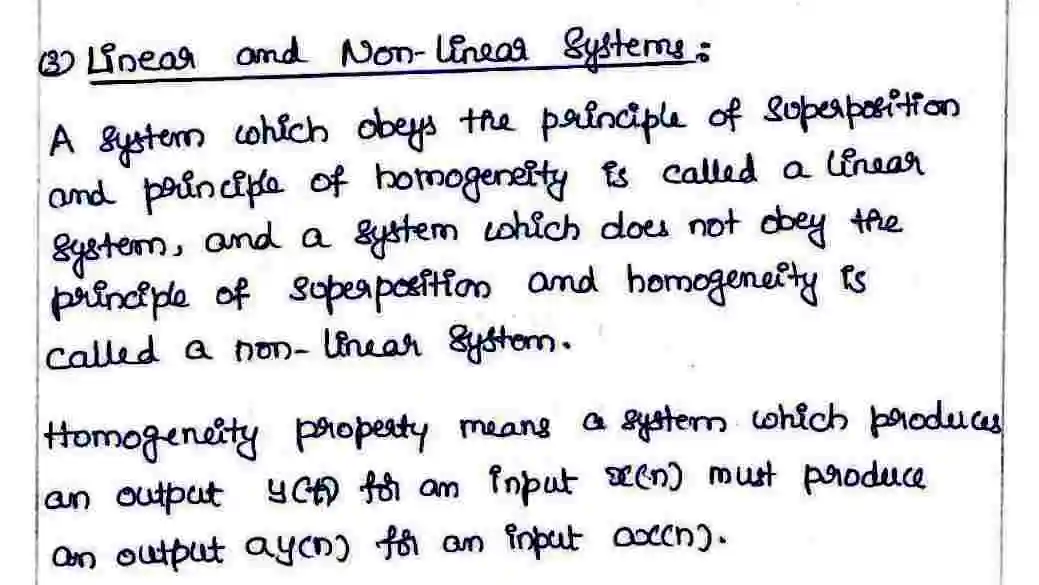 (3) Linear and Non-linear Systems:
A system which obeys the principle of superposition
and principle of homogeneity is called a linear
system, and a system which does not obey the
principle of superposition and homogeneity is
called a non-linear system.
Homogeneity property means a system which produces
an output y(n) for an input x(n) must produce
an output ay(n) for an input ax(n).